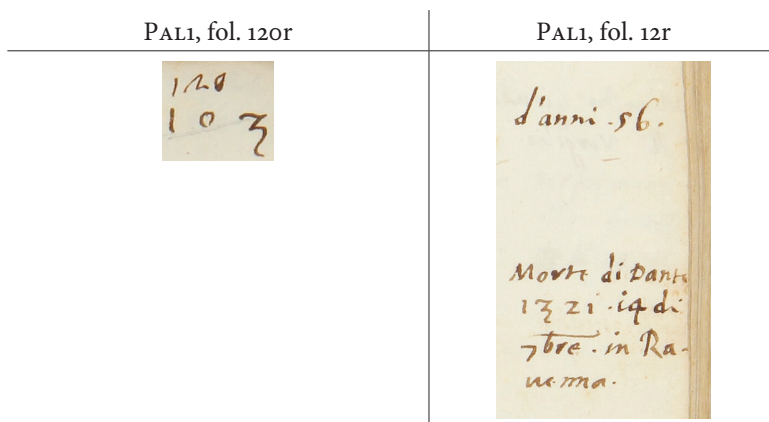 PAL1, fol. 120r
PAL1, fol. 12r
120
1 0 3
d'anni .56.
Morte di Dante
1321 .14 di
7bre . in Ra-
uenna.